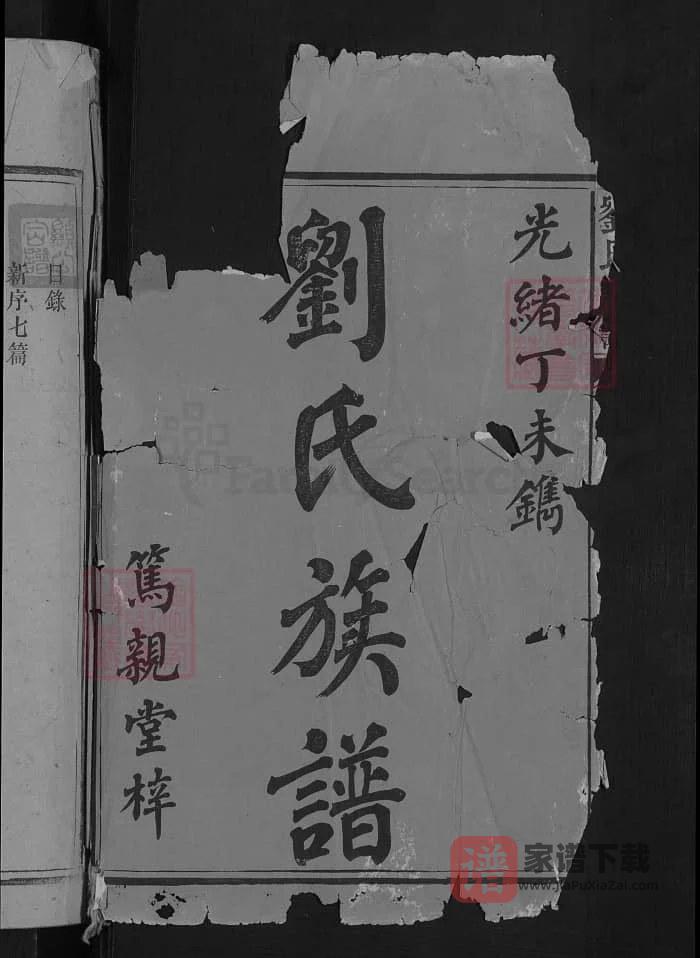 光緒丁未鐫
劉氏族譜
篤親堂梓
目錄
新序七篇
劉氏
FamilySearch
谱
家谱下载
www.JiaPuXiaZai.com